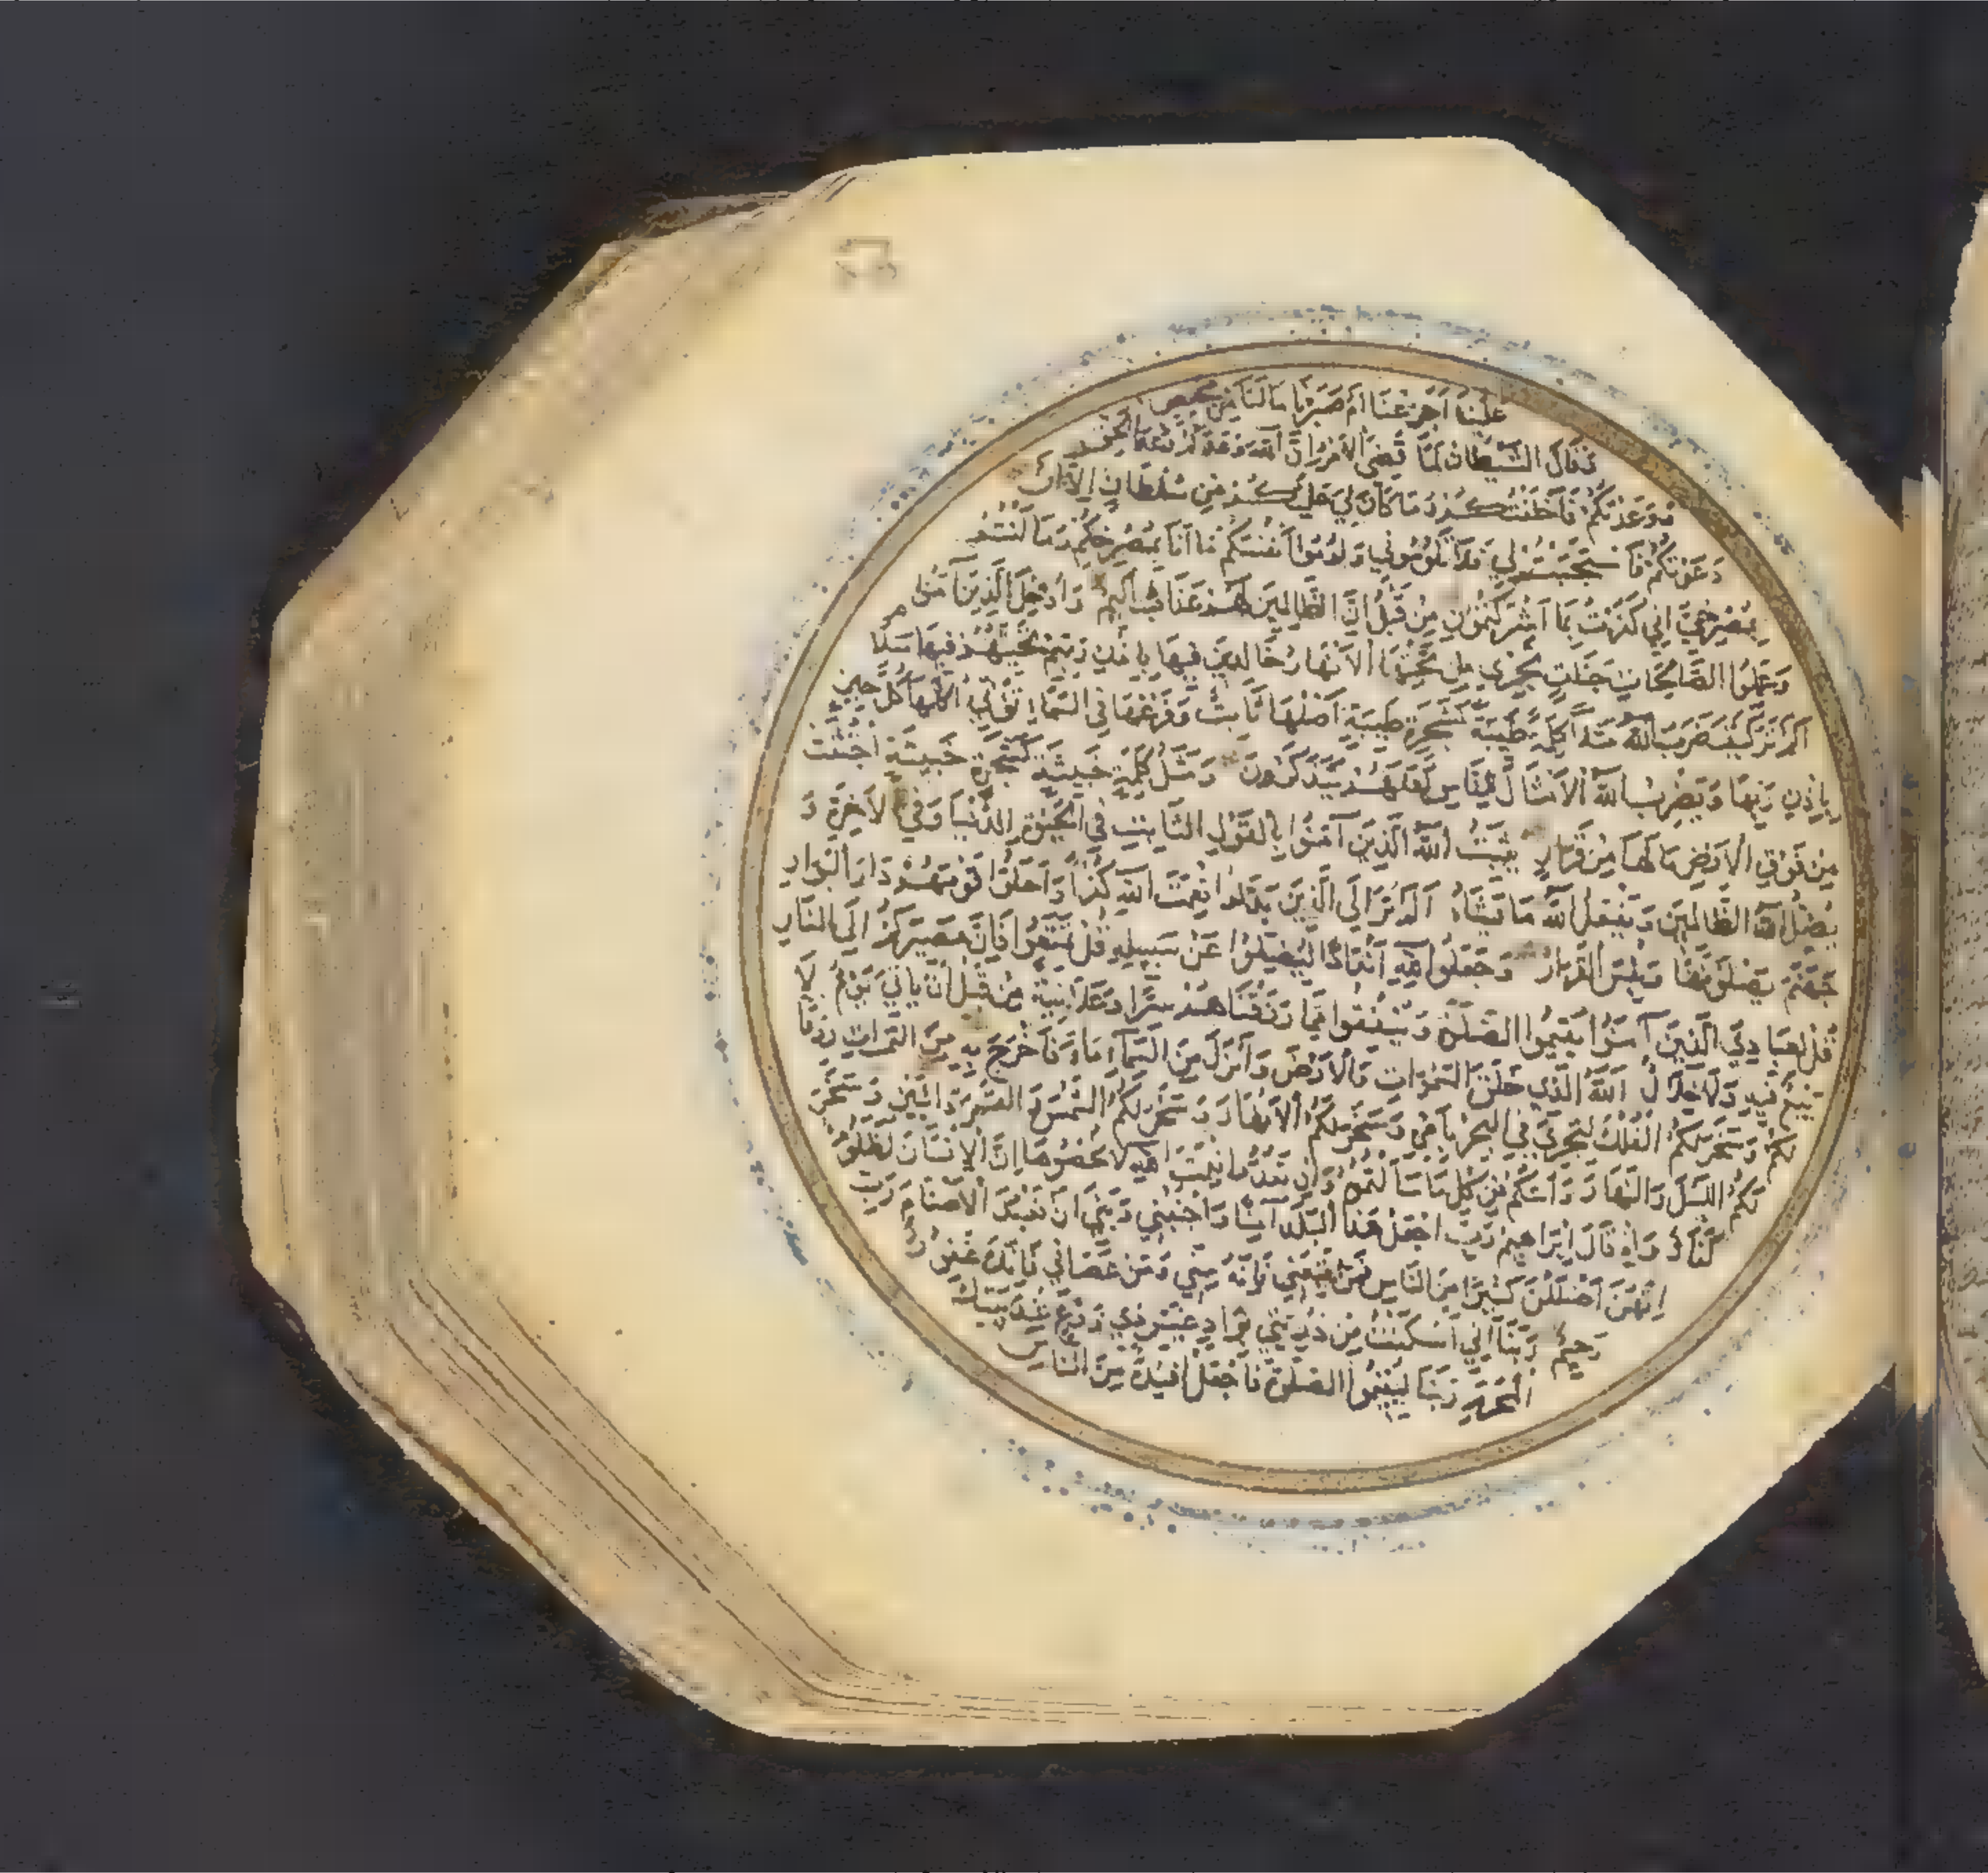 علينا اجزعنا ام صبرنا ما لنا من محيص
وقال الشيطان لما قضي الامر ان الله وعدكم وعد الحق
ووعدتكم فاخلفتكم وما كان لي عليكم من سلطان الا ان
دعوتكم فاستجبتم لي فلا تلوموني ولوموا انفسكم ما انا بمصرخكم وما انتم
بمصرخي اني كفرت بما اشركتمون من قبل ان الظالمين لهم عذاب اليم وادخل الذين آمنوا
وعملوا الصالحات جنات تجري من تحتها الانهار خالدين فيها باذن ربهم تحيتهم فيها سلام
الم تر كيف ضرب الله مثلا كلمة طيبة كشجرة طيبة اصلها ثابت وفرعها في السماء تؤتي اكلها كل حين
باذن ربها ويضرب الله الامثال للناس لعلهم يتذكرون ومثل كلمة خبيثة كشجرة خبيثة اجتثت
من فوق الارض ما لها من قرار يثبت الله الذين آمنوا بالقول الثابت في الحيوة الدنيا وفي الاخرة و
يضل الله الظالمين ويفعل الله ما يشاء الم تر الى الذين بدلوا نعمت الله كفرا واحلوا قومهم دار البوار
جهنم يصلونها وبئس القرار وجعلوا لله اندادا ليضلوا عن سبيله قل تمتعوا فان مصيركم الى النار
قل لعبادي الذين آمنوا يقيموا الصلوة وينفقوا مما رزقناهم سرا وعلانية من قبل ان ياتي يوم لا
بيع فيه ولا خلال الله الذي خلق السموات والارض وانزل من السماء ماء فاخرج به من الثمرات رزقا
لكم وسخر لكم الفلك لتجري في البحر بامره وسخر لكم الانهار وسخر لكم الشمس والقمر دائبين وسخر
لكم الليل والنهار وآتيكم من كل ما سالتموه وان تعدوا نعمت الله لا تحصوها ان الانسان لظلوم
كفار واذ قال ابراهيم رب اجعل هذا البلد آمنا واجنبني وبني ان نعبد الاصنام رب
انهن اضللن كثيرا من الناس فمن تبعني فانه مني ومن عصاني فانك غفور
رحيم ربنا اني اسكنت من ذريتي بواد غير ذي زرع عند بيتك
المحرم ربنا ليقيموا الصلوة فاجعل افئدة من الناس